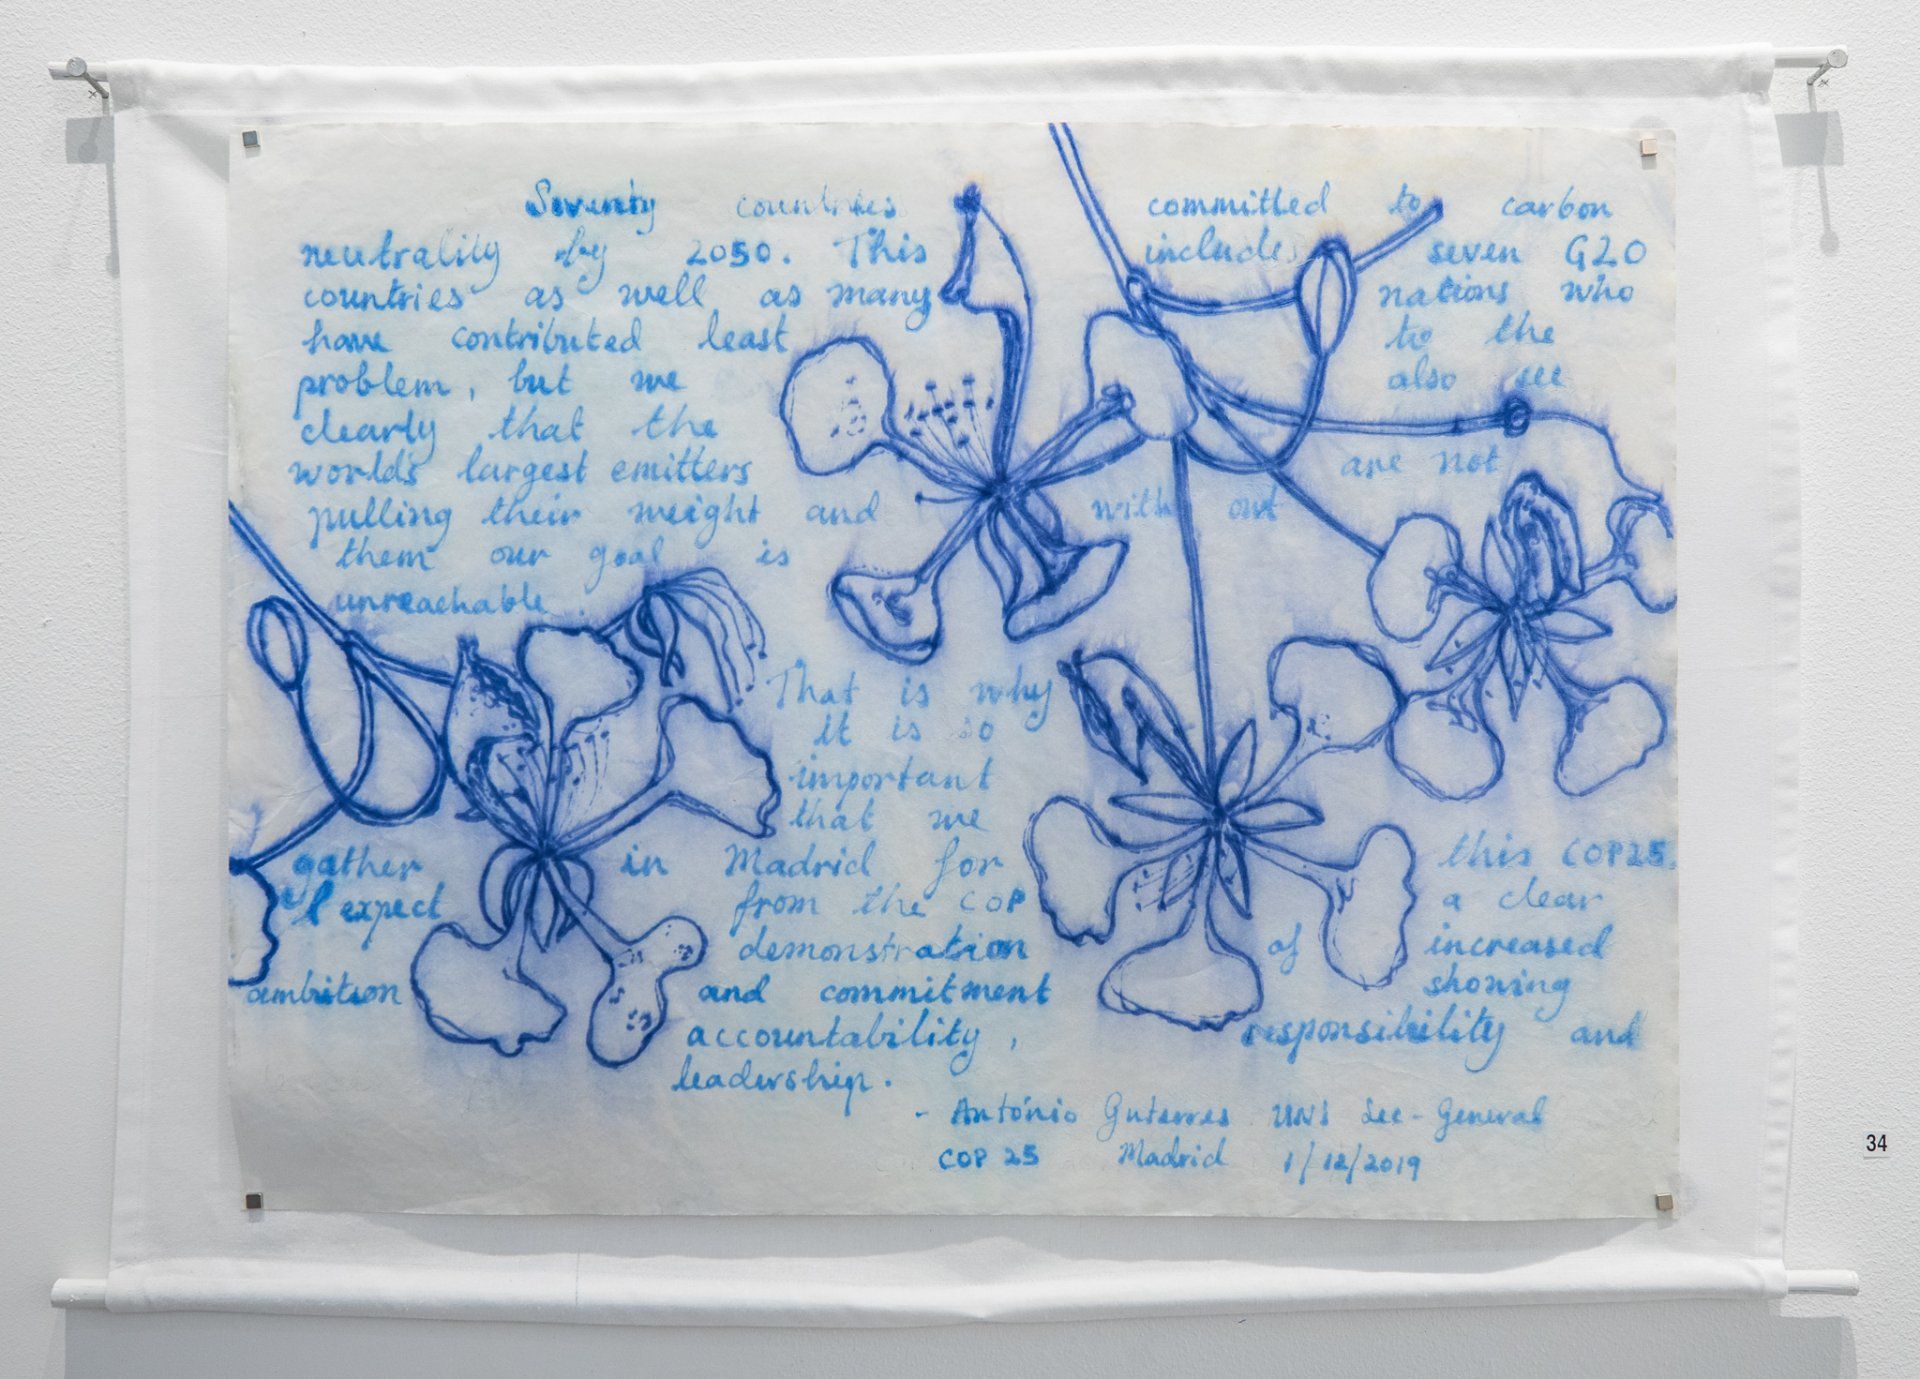 Seventy countries committed to carbon
neutrality by 2050. This includes seven G20
countries as well as many nations who
have contributed least to the
problem, but we also see
clearly that the
world's largest emitters are not
pulling their weight and with out
them our goal is
unreachable.
That is why
it is so
important
that we
gather in Madrid for this COP25.
I expect from the COP a clear
demonstration of increased
ambition and commitment showing
accountability, responsibility and
leadership.
- António Guterres UN Sec-General
COP 25 Madrid 1/12/2019
34